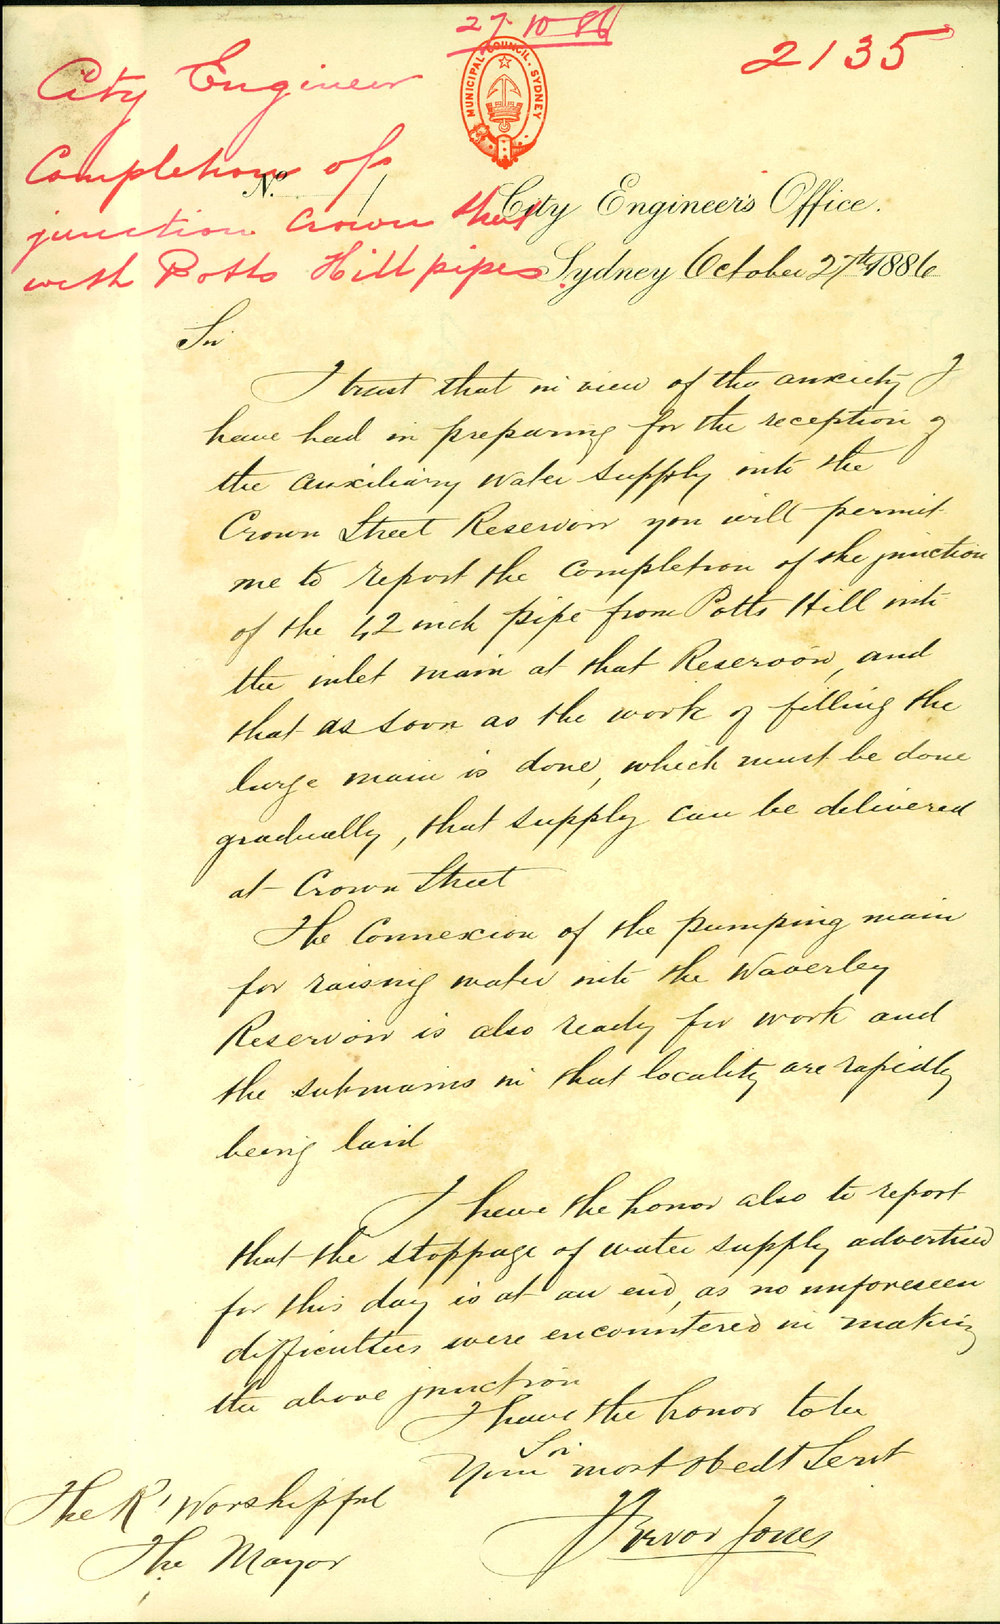 27-10-86
2135
MUNICIPAL COUNCIL SYDNEY
City Engineer
Completion of
junction Crown Street
with Potts Hill pipes
No.
City Engineer's Office.
Sydney October 27th 1886
Sir
I trust that in view of the anxiety I
have had in preparing for the reception of
the auxiliary water supply into the
Crown Street Reservoir you will permit
me to report the completion of the junction
of the 42 inch pipe from Potts Hill into
the inlet main at that Reservoir, and
that as soon as the work of filling the
large main is done, which must be done
gradually, that supply can be delivered
at Crown Street
The Connexion of the pumping main
for raising water into the Waverley
Reservoir is also ready for work and
the submains in that locality are rapidly
being laid
I have the honor also to report
that the stoppage of water supply advertised
for this day is at an end, as no unforeseen
difficulties were encountered in making
the above junction
I have the honor to be
Sir
Your most obedt Servt
Trevor Jones
The Rt Worshipful
The Mayor